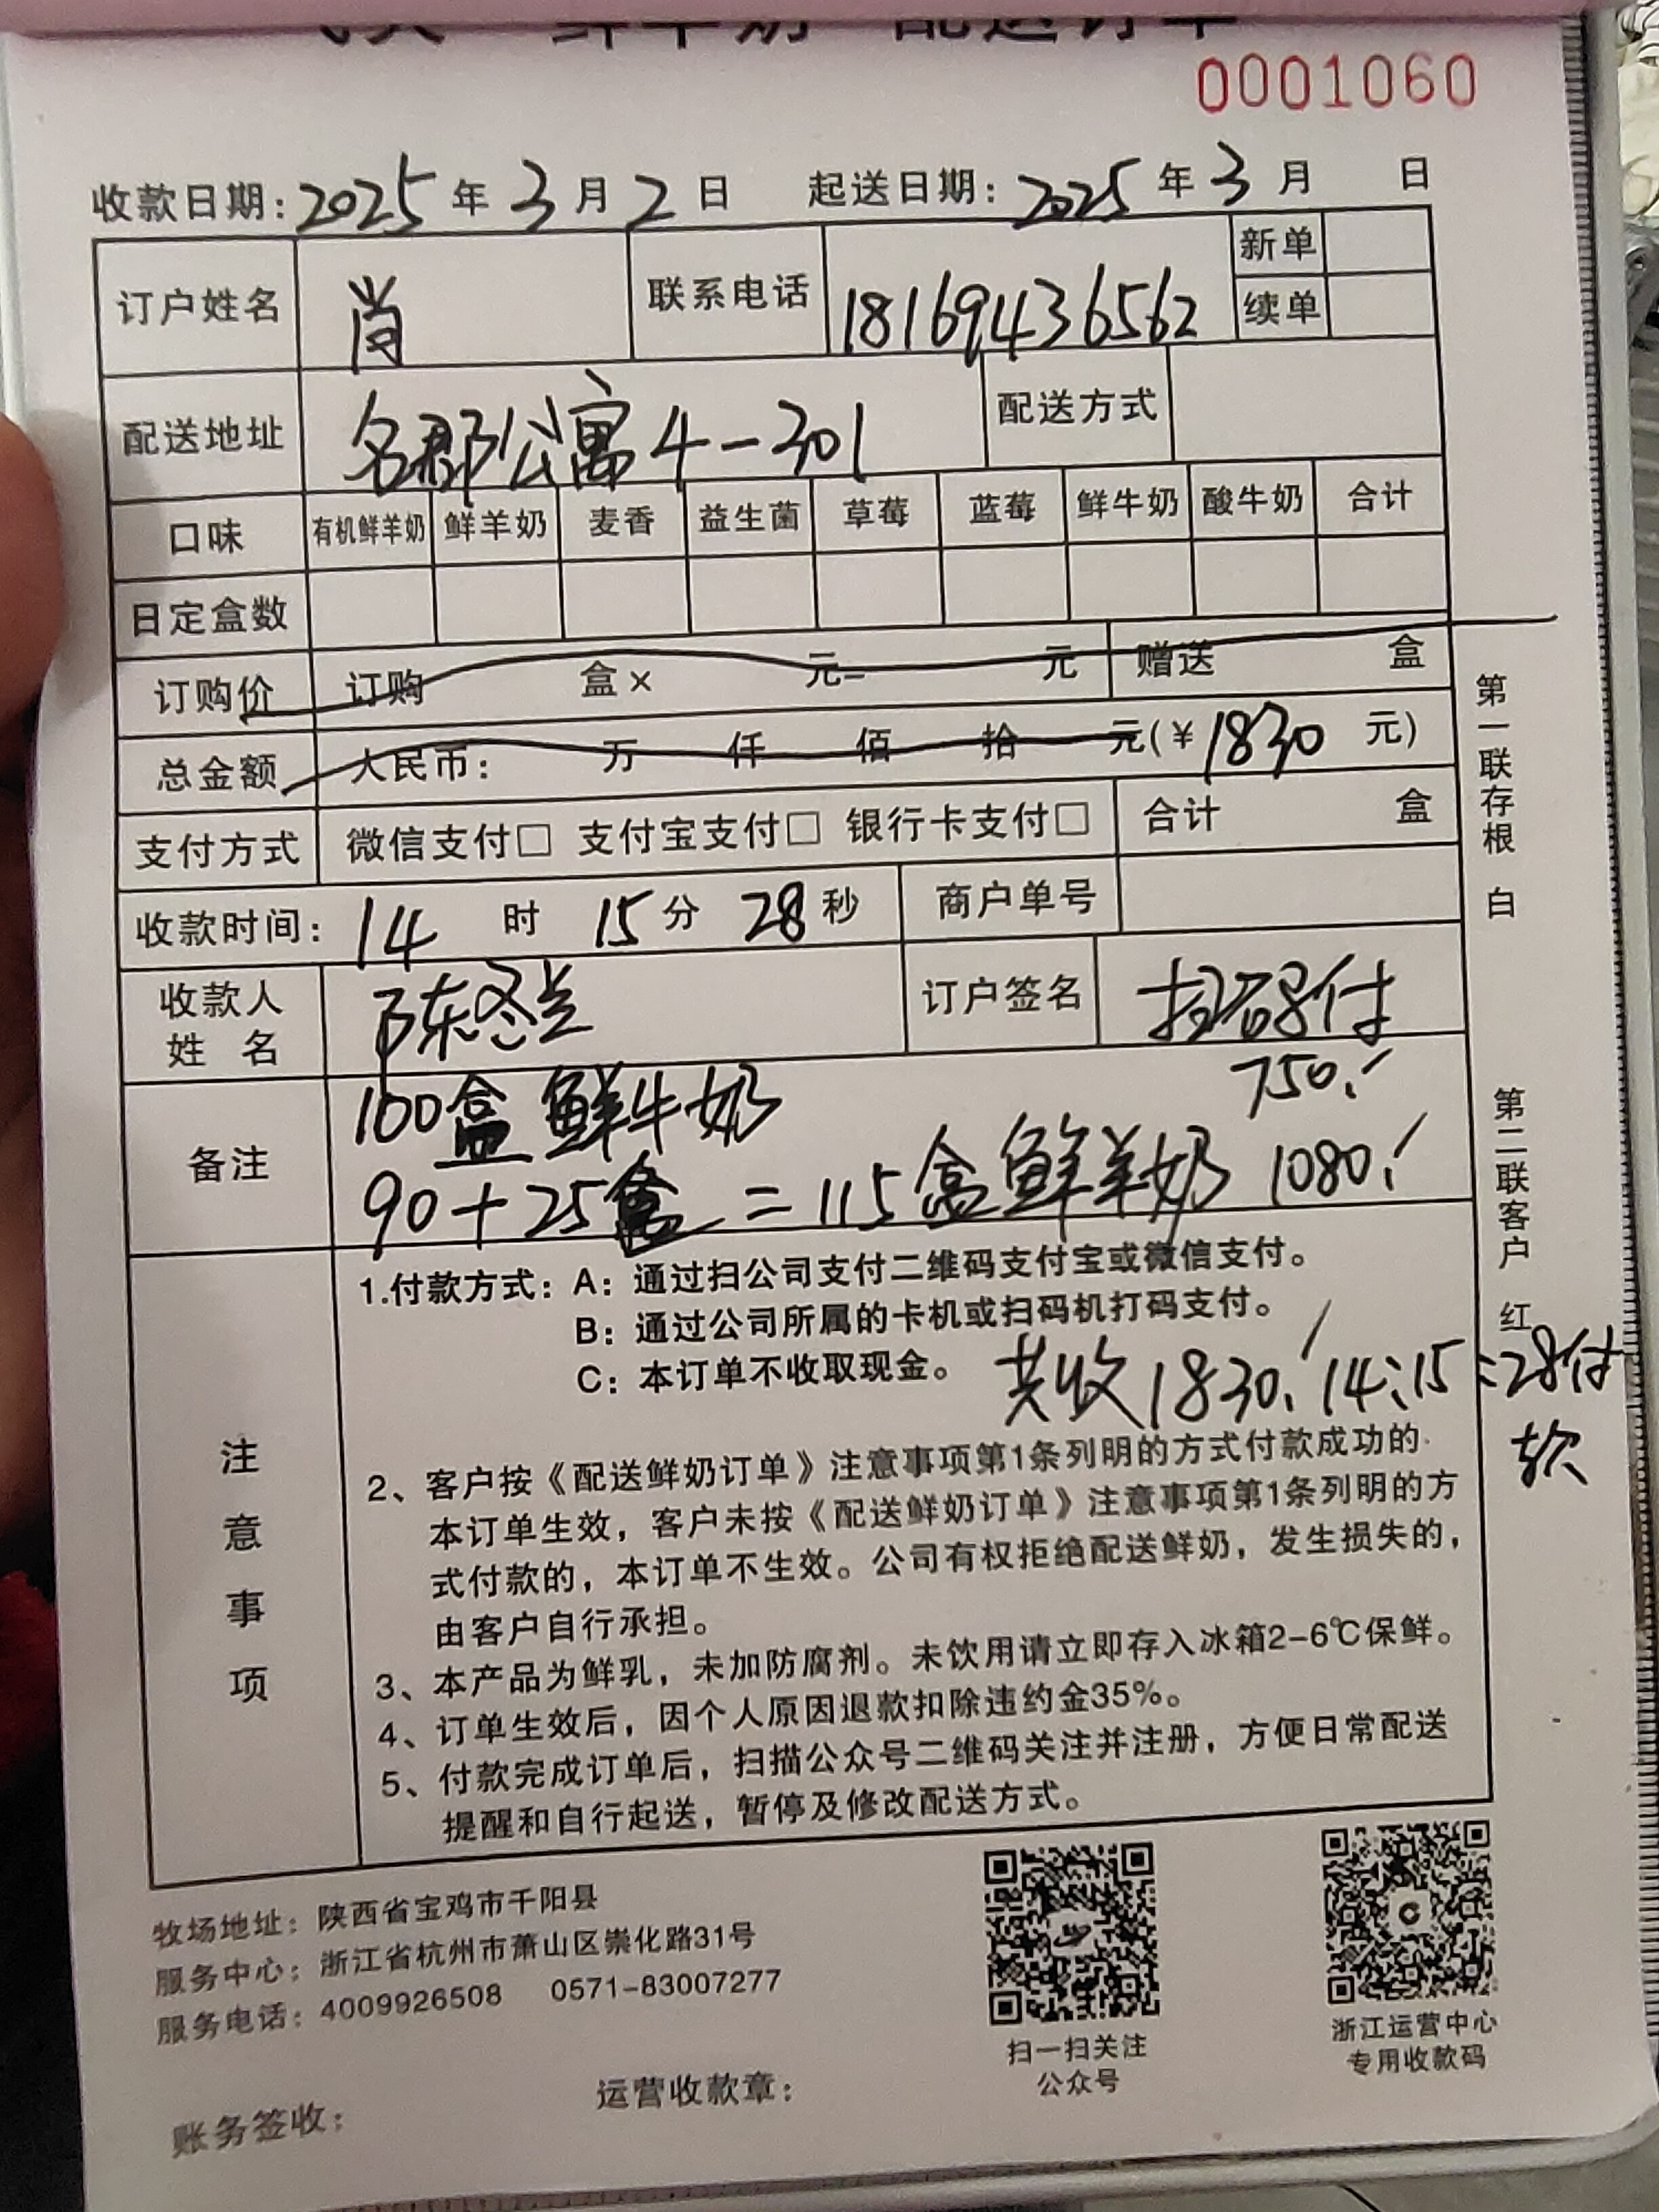 鲜羊奶 配送订单
0001060
收款日期：2025年3月2日 起送日期：2025年3月 日
订户姓名 肖 联系电话 18169436562 新单
续单
配送地址 名郡公寓4-301 配送方式
口味 有机鲜羊奶 鲜羊奶 麦香 益生菌 草莓 蓝莓 鲜牛奶 酸牛奶 合计
日定盒数
订购价 订购 盒× 元= 元 赠送 盒
总金额 人民币： 万 仟 佰 拾 元(¥1830 元)
支付方式 微信支付□ 支付宝支付□ 银行卡支付□ 合计 盒
收款时间：14时15分28秒 商户单号
收款人姓名 陈冬兰 订户签名 扫码付
备注 100盒鲜牛奶 750.
90+25盒=115盒鲜羊奶 1080.
注意事项
1.付款方式：A：通过扫公司支付二维码支付宝或微信支付。
B：通过公司所属的卡机或扫码机打码支付。
C：本订单不收取现金。
共收1830. 14:15:28付款
2、客户按《配送鲜奶订单》注意事项第1条列明的方式付款成功的
本订单生效，客户未按《配送鲜奶订单》注意事项第1条列明的方
式付款的，本订单不生效。公司有权拒绝配送鲜奶，发生损失的，
由客户自行承担。
3、本产品为鲜乳，未加防腐剂。未饮用请立即存入冰箱2-6℃保鲜。
4、订单生效后，因个人原因退款扣除违约金35%。
5、付款完成订单后，扫描公众号二维码关注并注册，方便日常配送
提醒和自行起送，暂停及修改配送方式。
第一联存根 白
第二联客户 红
牧场地址：陕西省宝鸡市千阳县
服务中心：浙江省杭州市萧山区崇化路31号
服务电话：4009926508 0571-83007277
扫一扫关注
公众号
浙江运营中心
专用收款码
账务签收：
运营收款章：